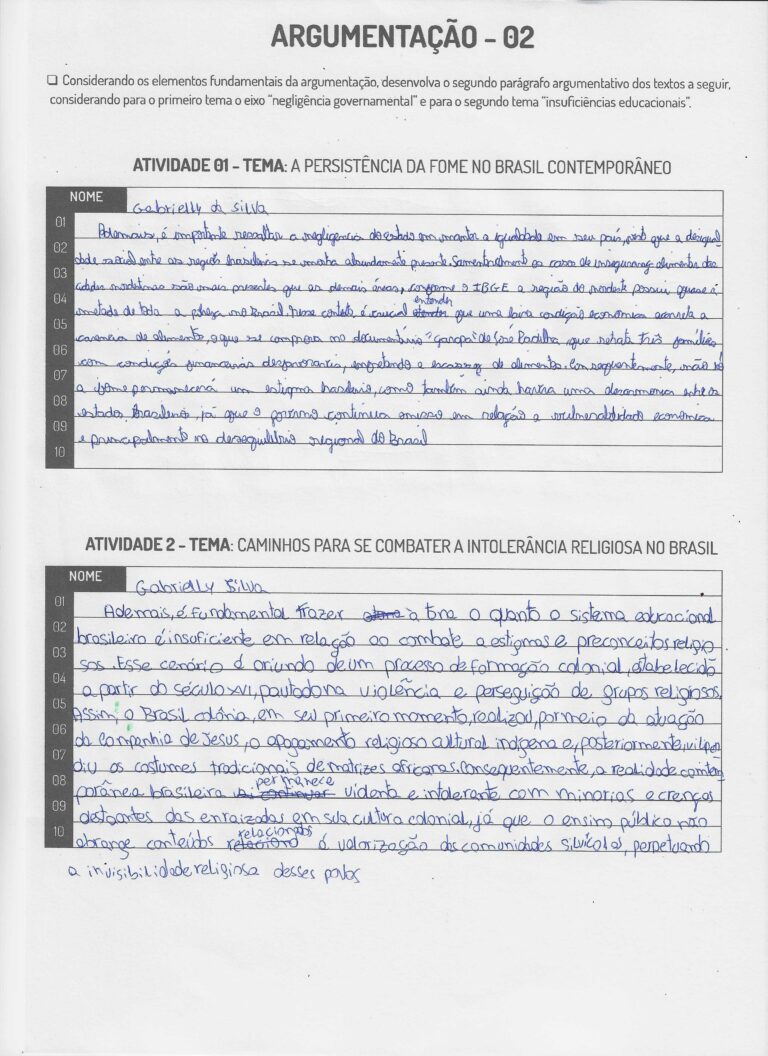 ARGUMENTAÇÃO - 02
❑ Considerando os elementos fundamentais da argumentação, desenvolva o segundo parágrafo argumentativo dos textos a seguir,
considerando para o primeiro tema o eixo "negligência governamental" e para o segundo tema "insuficiências educacionais".
ATIVIDADE 01 – TEMA: A PERSISTÊNCIA DA FOME NO BRASIL CONTEMPORÂNEO
NOME Gabrielly da Silva
01 Ademais, é importante ressaltar a negligencia do estado em manter a igualdade em seu país, visto que a desigual
02 dade social entre as regiões brasileiras se mostra abundamente presente. os casos de insegurança alimentar das
03 cidades nordestinas são mais presentes que as demais áreas, conforme o IBGE a região do nordeste possui quase a
04 metade de toda a pobreza no Brasil. Nesse contexto, é crucial entender que uma baixa condição econômica acarreta a
05 carencia de alimento, o que se comprova no documentário "Garapa" de José Padilha, que relata três famílias
06 com condição financeira desfavoravel, enfretando a escassez de alimentos. Consequentemente, não só
07 a fome permanecerá um estigma brasileiro, como também ainda haverá uma desarmonia entre os
08 estados brasileiros, já que o governo continua omisso em relação a vulnerabilidade econômica
09 e principalmente no desequilíbrio regional do Brasil
10
ATIVIDADE 2 – TEMA: CAMINHOS PARA SE COMBATER A INTOLERÂNCIA RELIGIOSA NO BRASIL
NOME Gabrielly Silva
01 Ademais, é fundamental trazer à tona o quanto o sistema educacional
02 brasileiro é insuficiente em relação ao combate a estigmas e preconceitos religio
03 sos. Esse cenário é oriundo de um processo de formação colonial, estabelecido
04 a partir do século XVI, pautado na violência e perseguição de grupos religiosos.
05 Assim, o Brasil colônia, em seu primeiro momento, realizou, por meio da atuação
06 da Companhia de Jesus, o apagamento religioso cultural indígena e, posteriormente, vilipen
07 diu os costumes tradicionais de matrizes africanas. Consequentemente, a realidade contem
08 porânea brasileira permanece violenta e intolerante com minorias e crenças
09 destoantes das enraizadas em sua cultura colonial, já que o ensino público não
10 abrange conteúdos relacionados à valorização das comunidades silvícolas, perpetuando
a invisibilidade religiosa desses povos